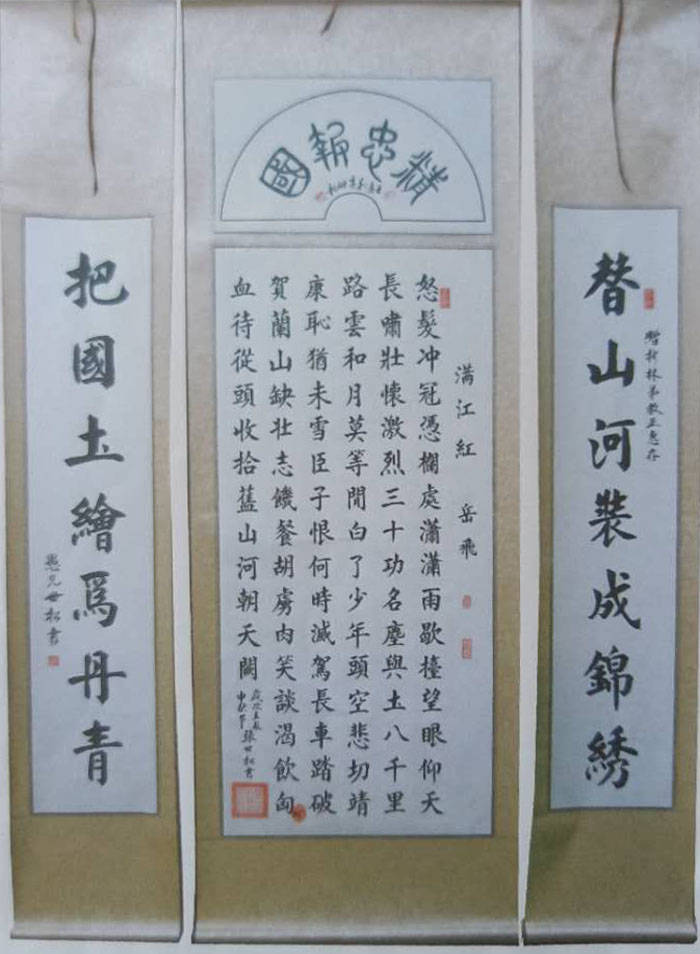 精忠報國
替山河裝成錦綉
林弟教正惠存
满江紅 岳飛
怒髮冲冠憑欄處瀟瀟雨歇擡望眼仰天
長嘯壯懷激烈三十功名塵與土八千里
路雲和月莫等閒白了少年頭空悲切靖
康恥猶未雪臣子恨何時滅駕長車踏破
賀蘭山缺壯志饑餐胡虜肉笑談渴飲匈
血待從頭收拾舊山河朝天闕
張世松書
把國土繪爲丹青
愚兄世松書